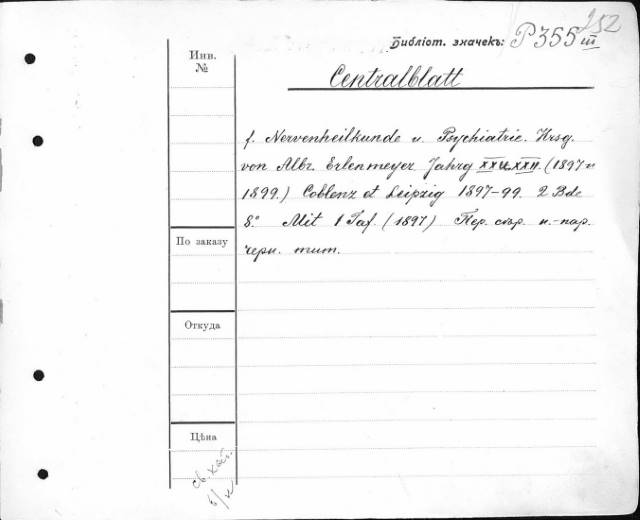 252
Библіот. значекъ: P355 III
Инв.
№
Centralblatt
f. Nervenheilkunde u. Psychiatrie. Hrsg.
von Albr. Erlenmeyer Jahrg XX u. XXII. (1897 u
1899.) Coblenz et Leipzig 1897-99. 2 Bde
8.° Mit 1 Taf. (1897) Пер. сѣр. п.-пар.
черн. тит.
По заказу
Откуда
Цѣна
св. кат.